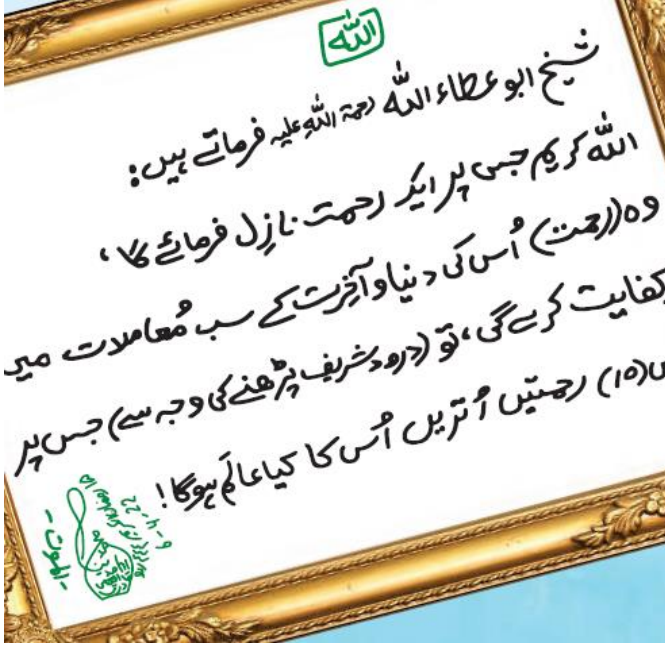 اللہ
شیخ ابو عطاء اللہ رحمۃ اللہ علیہ فرماتے ہیں:
اللہ کریم جس پر ایک رحمت نازِل فرمائے گا،
وہ (رحمت) اُس کی دنیا و آخِرت کے سب مُعاملات میں
کفایت کرے گی، تو (درود شریف پڑھنے کی وجہ سے) جس پر
(10) رحمتیں اُتریں اُس کا کیا عالَم ہوگا!
9-4-22